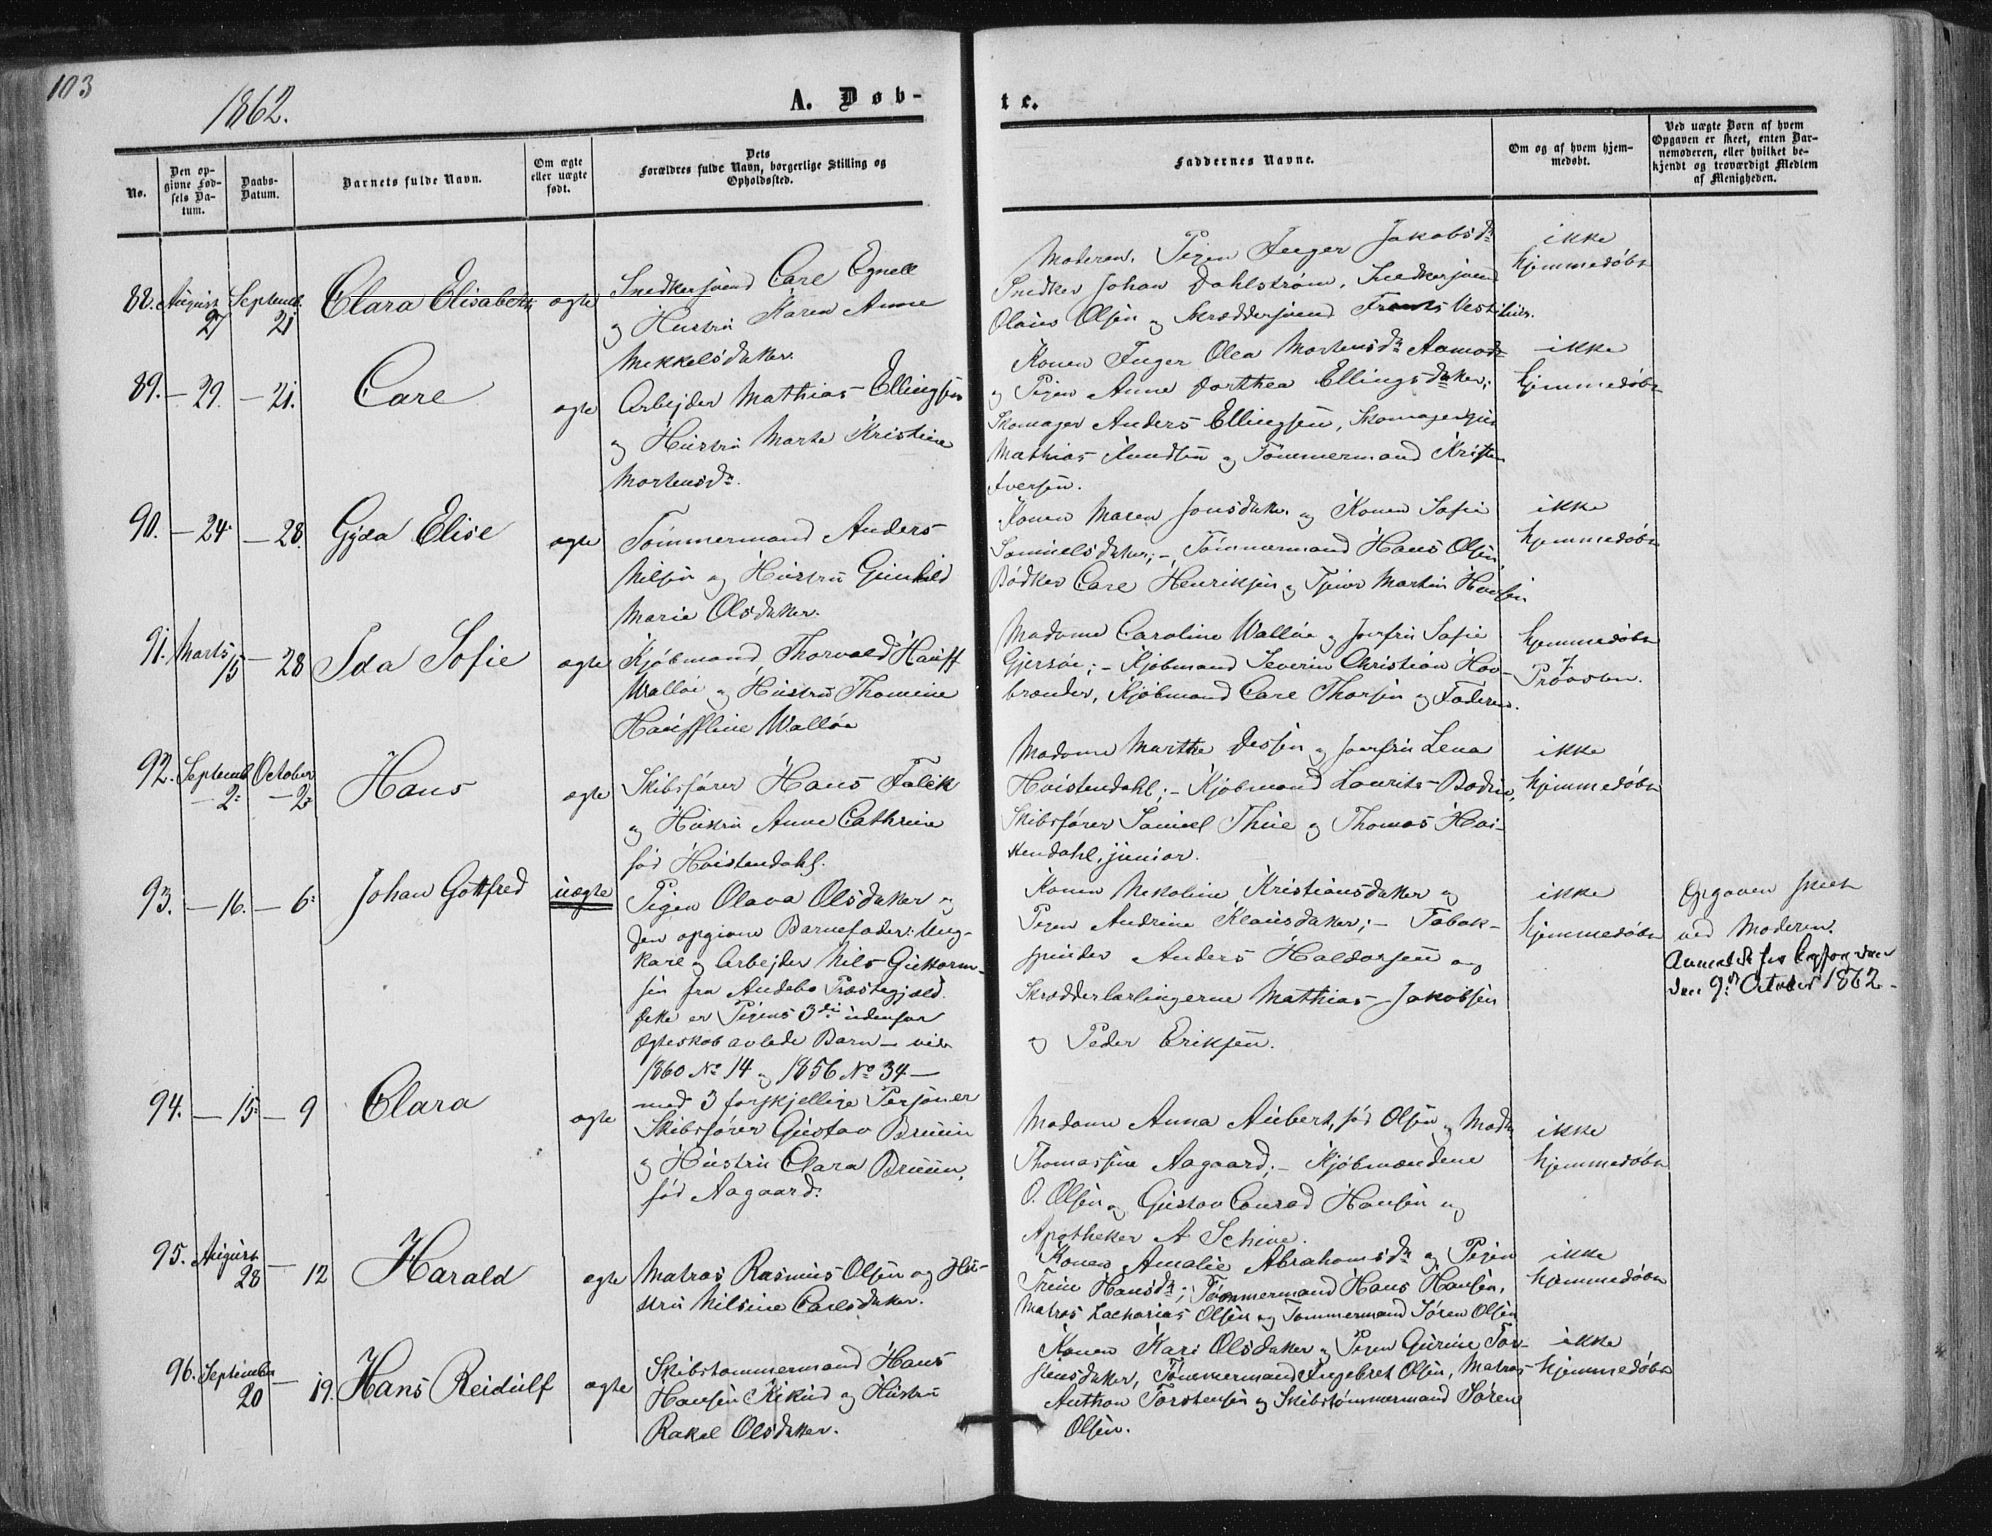 103
1862.
A. Døb-
te.
No.
Den op-
givne Fød-
sels Da-
tum.
Daabs-
Datum.
Barnets fulde Navn.
Om ægte
eller uægte
født.
Dets
Forældres fulde Navn, borgerlige Stilling og
Opholdssted.
Faddernes Navne.
Om og af hvem hjem-
medøbt.
Ved uægte Børn af hvem
Opgaven er skeet, enten Bar-
nemoderen, eller hvilket be-
kjendt og troværdigt Medlem
af Menigheden.
88. August 27 Septemb. 21 Clara Elisabeth ægte
Snedkersvend Carl Egnell
og Hustru Karen Anne
Mikkelsdatter.
Moderen, Pigen Inger Jakobsdr
Snedker Johan Dahlstrøm, Snedkersvend
Olaus Olsen og Skræddersvend Frants
ikke
hjemmedøbt
89. – 29. – 21. Carl ægte
Arbejder Mathias Ellingsen
og Hustru Marte Kristine
Mortensdr.
Konen Inger Olea Mortensdr Aamodt
og Pigen Anne Dorthea Ellingsdatter;
Skomager Anders Ellingsen, Skomagersvend
Mathias Knudsen og Tømmermand Kristen
Iversen.
ikke
hjemmedøbt
90. – 24. – 28. Gyda Elise ægte
Tømmermand Anders
Nilsen og Hustru Gunhild
Marie Olsdatter.
Konen Maren Jonsdatter og Konen Sofie
Samuelsdatter; – Tømmermand Hans Olsen,
Bødker Carl Henriksen og Tjener Martin Hansen
ikke
hjemmedøbt
91. Marts 15 – 28 Ida Sofie ægte
Kjøbmand Thorvald Hauff
Walløe og Hustru Thomine
Hauffline Walløe
Madame Caroline Walløe og Jomfru Sofie
Gjersøe; – Kjøbmand Severin Christian Hav-
brænder, Kjøbmand Carl Thorsen og Faderen.
hjemmedøbt
Provsten.
92. Septemb. – 2. October – 2. Hans ægte
Skibsfører Hans Falck
og Hustru Anne Cathrine
fød Hvistendahl.
Madame Marthe Jessen og Jomfru Lena
Hvistendahl; – Kjøbmand Laurits Bodin,
Skibsfører Samuel Thue og Thomas Hvi-
stendahl, junior.
ikke
hjemmedøbt
93. – 16. – 6. Johan Gottfred uægte
Pigen Olava Olsdatter og
den opgivne Barnefader: Ung-
karl og Arbejder Nils Guttorm-
sen fra Andebo Præstegjæld.
Dette er Pigens 3die udenfor
Ægteskab avlede Barn – vide
1860 No 14 og 1856 No 34 –
med 3 forskjellige Personer
Konen Nikoline Kristiansdatter og
Pigen Andrine Klausdatter; – Tobak-
spinder Anders Haldorsen og
Skrædderlærlingerne Mathias Jakobsen
og Peder Eriksen.
ikke
hjemmedøbt
Opgaven skeet
ved Moderen.
Anmeldt for Byfogden
den 9de October 1862 –
94. – 15. – 9 Clara ægte
Skibsfører Gustav Bruun
og Hustru Clara Bruun,
fød Aagaard.
Madame Anna Aubert, fød Olsen og Madme
Thomasine Aagaard; – Kjøbmændene
O. Olsen og Gustav Conrad Hansen og
Apotheker A
ikke
hjemmedøbt
95. August 28 – 12 Harald ægte
Matros Rasmus Olsen og Hu-
stru Nilsine Carlsdatter.
Konen Amalie Abrahamsdr og Pigen
Trine Hansdr; Tømmermand Hans Hansen,
Matros Zacharias Olsen og Tømmermand Søren Olsen
ikke
hjemmedøbt
96. September 20 – 19. Hans Reidulf ægte
Skibstømmermand Hans
Hansen og Hustru
Rakel Olsdatter.
Konen Kari Olsdatter og Pigen Gurine Tor-
stensdatter, Tømmermand Ingebret Olsen, Matros
Anthon Torstensen og Skibstømmermand Søren
Olsen.
ikke
hjemmedøbt